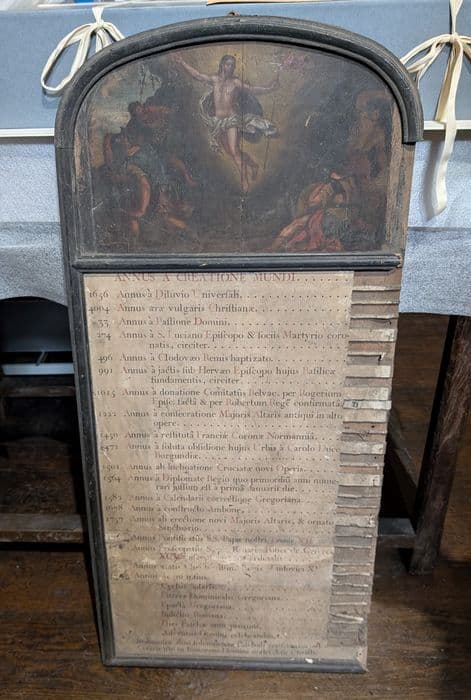 ANNUS A CREATIONE MUNDI
1656 Annus à Diluvio Universali
4004 Annus æræ vulgaris Christianæ
33 Annus à Passione Domini
274 Annus à S. Luciano Episcopo & sociis Martyrio coro-
natis, circiter
496 Annus à Clodovæo Remis baptizato
991 Annus à jactis sub Hervæo Episcopo hujus Basilicæ
fundamentis, circiter
1015 Annus à donatione Comitatûs Belvac. per Rogerium
Episc. factâ & per Robertum Regē confirmatâ
1222 Annus à consecratione Majoris Altaris antiqui in alto
opere
1450 Annus à restitutâ Franciæ Coronæ Normanniâ
1472 Annus à soluta obsidione hujus Urbis à Carolo Duce
Burgundiæ
1501 Annus ab inchoatione Crucis novi Operis
1564 Annus à Diplomate Regio quo primordiū anni nume-
rari jussum est à primâ Januarii die
1582 Annus à Calendarii correctione Gregoriana
Annus à constructo Ambone
1737 Annus ab erectione novi Majoris Altaris, & ornato
Sanctuario
Annus Pontificatûs S.S. Papæ nostri
Annus Episcopatûs
Annus
Annus
Cyclus Solaris
Littera Dominicalis Gregoriana
Epacta Gregoriana
Indictio Romana
Dies Paschæ anni præsentis